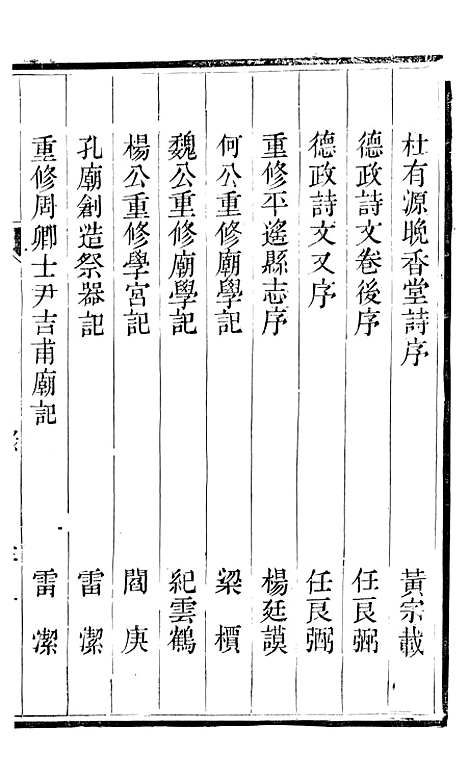 杜有源晚香堂詩序　黃宗載
德政詩文卷後序　任良弼
德政詩文又序　任良弼
重修平遙縣志序　楊廷謨
何公重修廟學記　梁檟
魏公重修廟學記　紀雲鶴
楊公重修學宮記　閻庚
孔廟創造祭器記　雷潔
重修周卿士尹吉甫廟記　雷潔